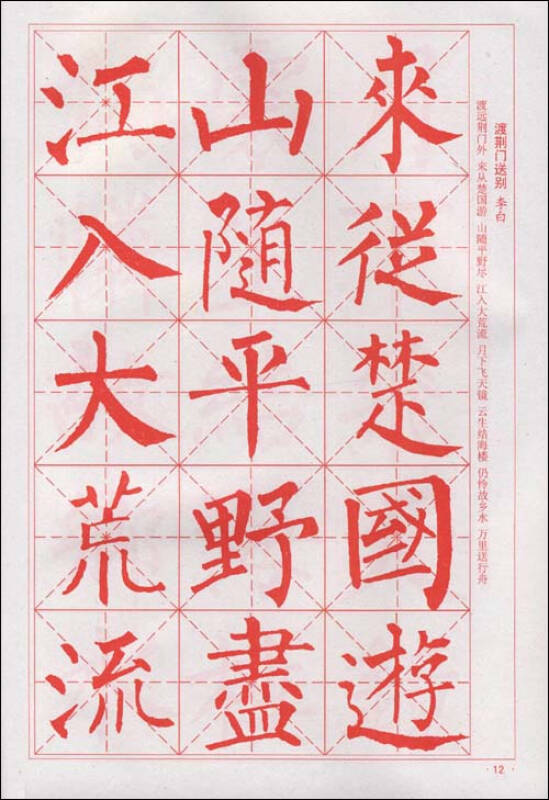 渡荆门送别 李白
渡远荆门外 来从楚国游 山随平野尽 江入大荒流 月下飞天镜 云生结海楼 仍怜故乡水 万里送行舟
來從楚國遊
山随平野盡
江入大荒流
·12·